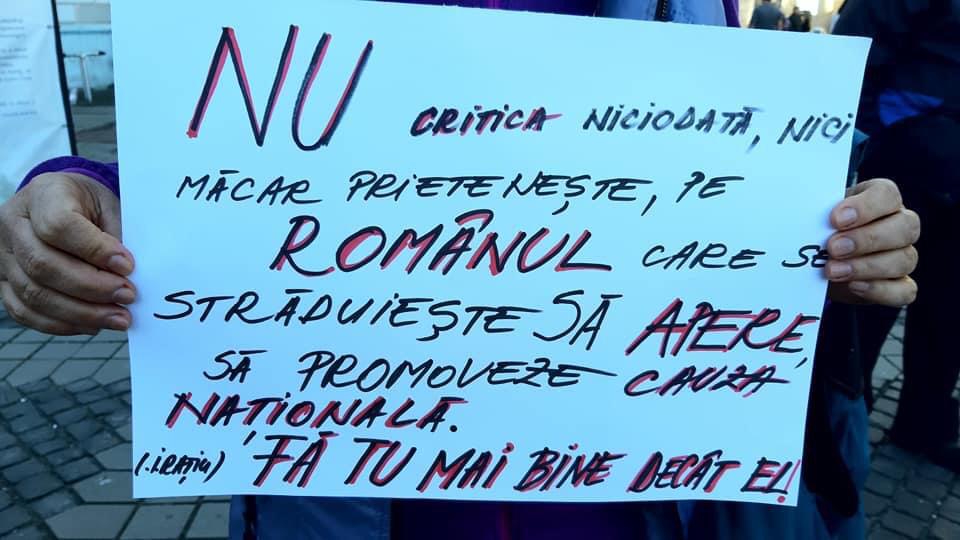 NU CRITICA NICIODATĂ, NICI
MĂCAR PRIETENEȘTE, PE
ROMÂNUL CARE SE
STRĂDUIEȘTE SĂ APERE,
SĂ PROMOVEZE CAUZA
NAȚIONALĂ.
(I.RAȚIU) FĂ TU MAI BINE DECÂT EL!